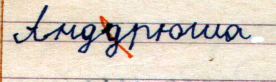 Анддрюша